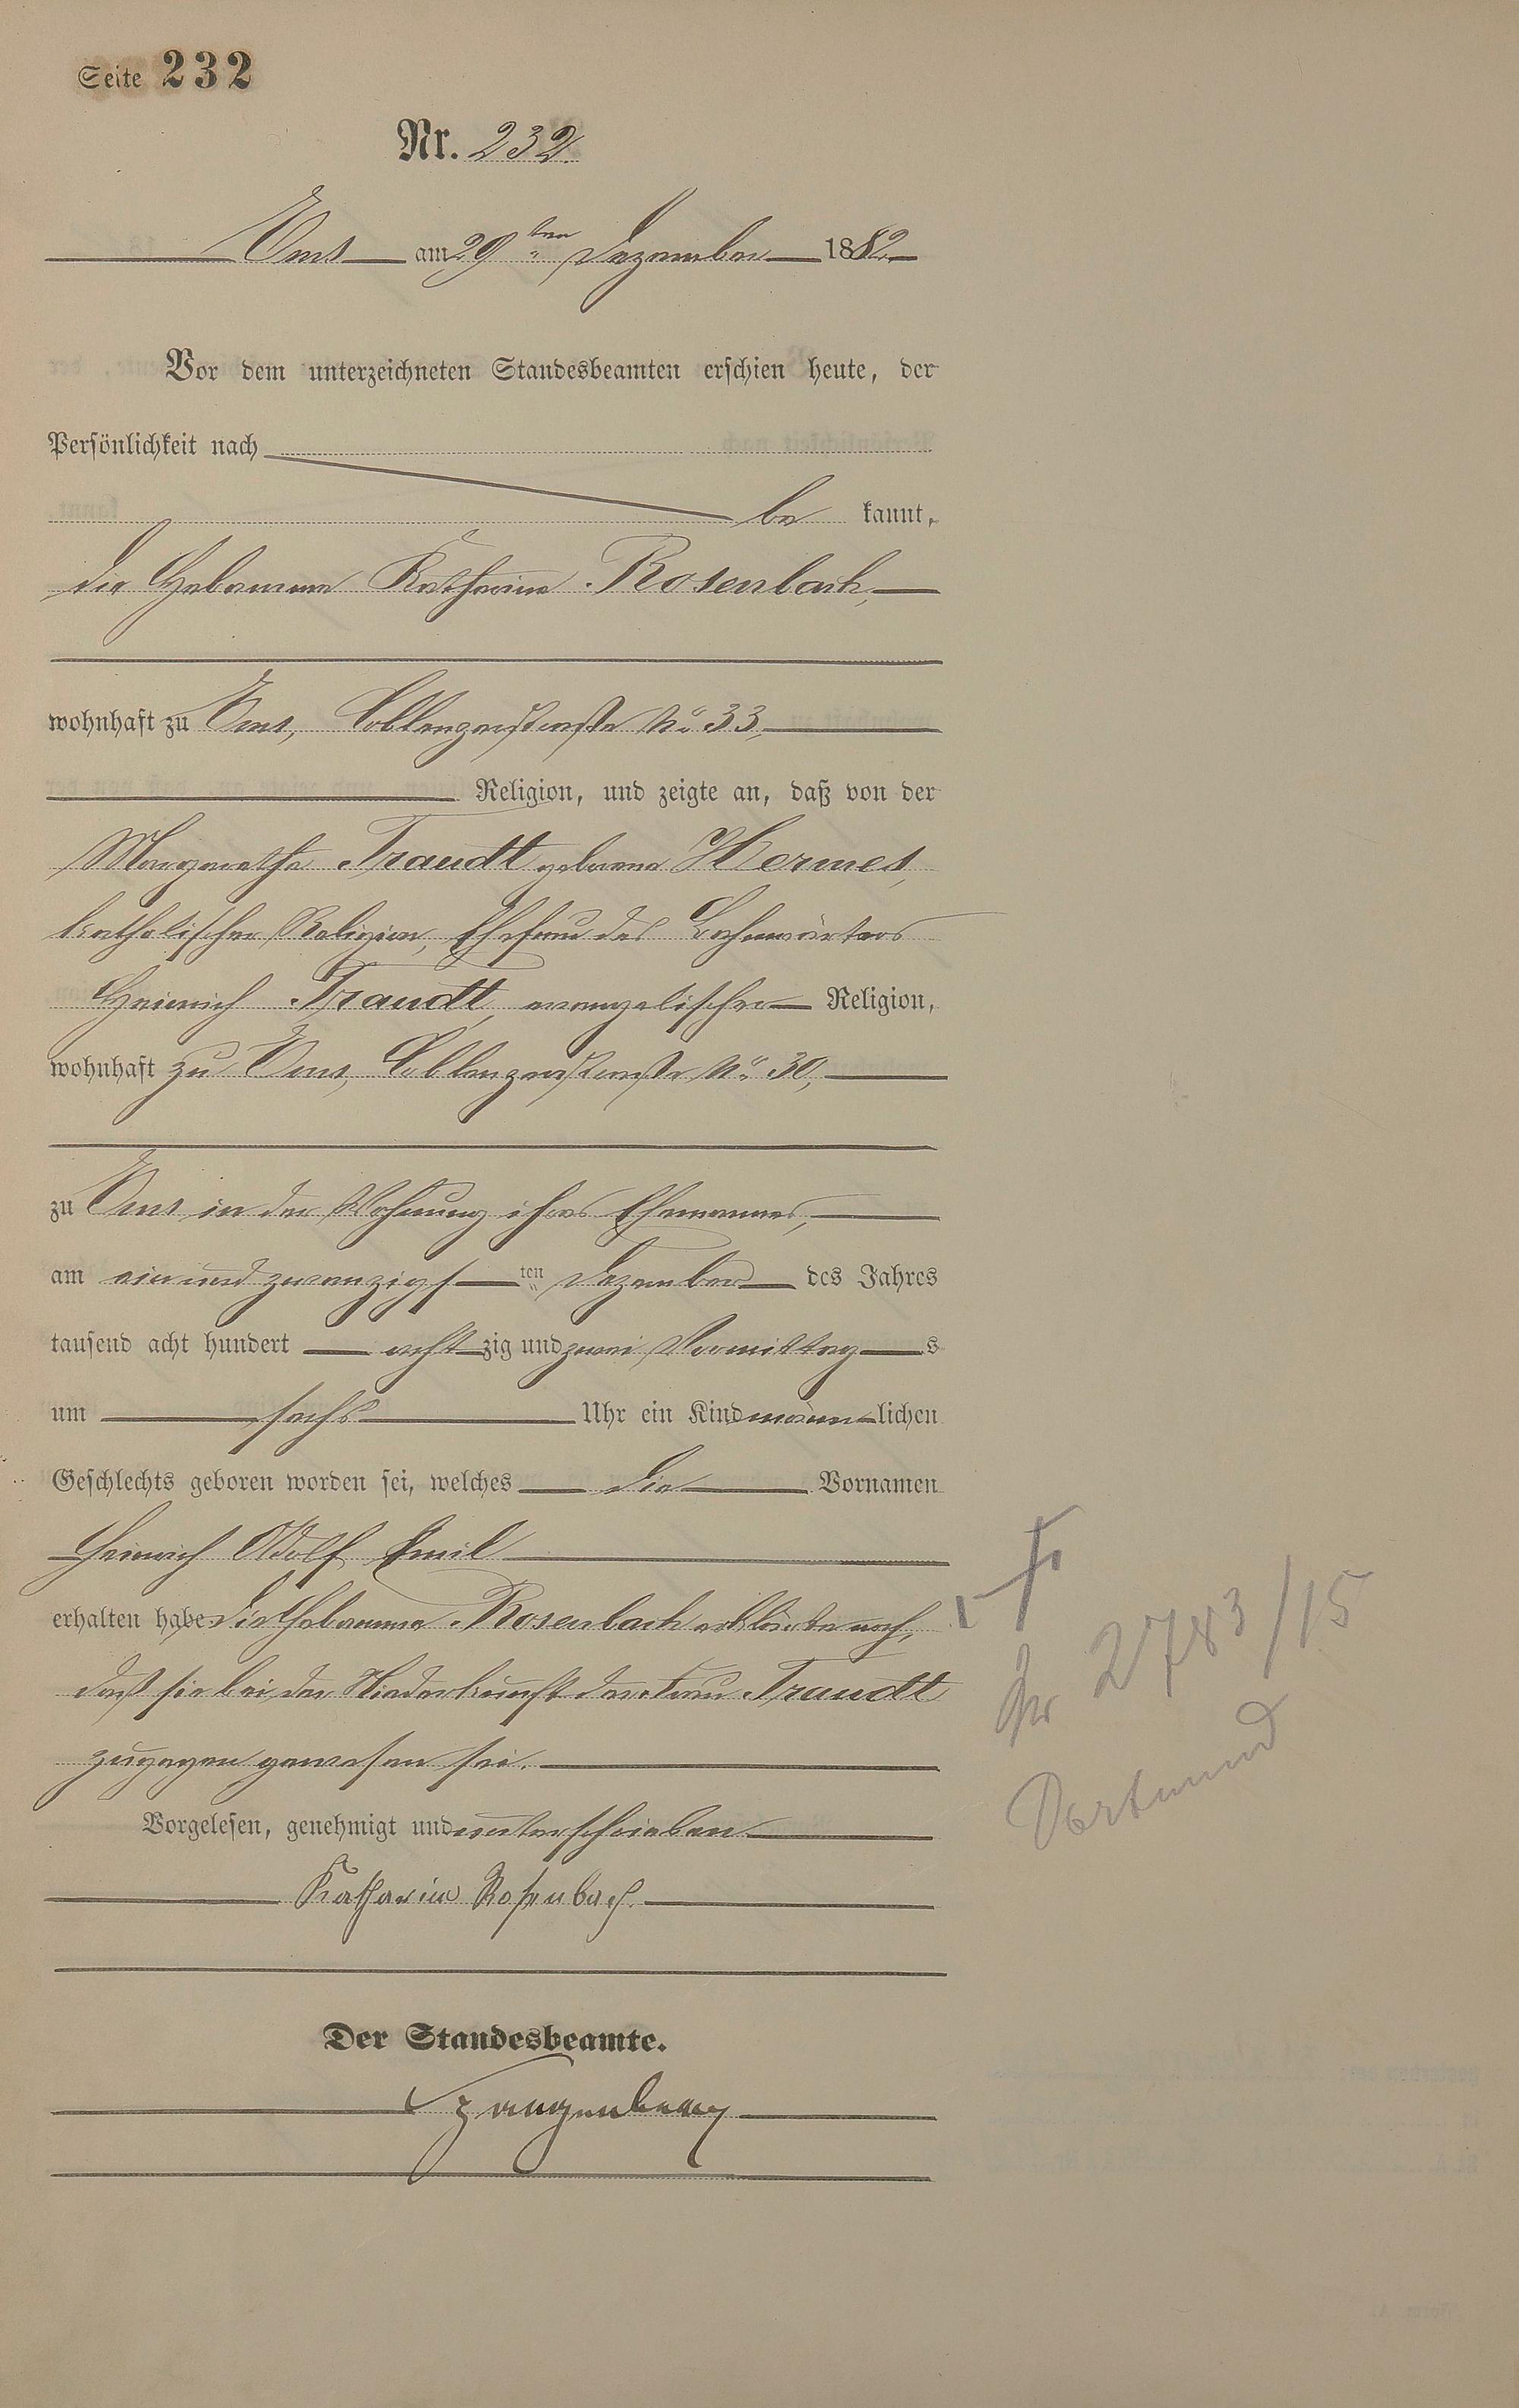 Seite 232
Nr. 232.
Ems am 29ten Dezember 1882.
Vor dem unterzeichneten Standesbeamten erschien heute, der
Persönlichkeit nach
be kannt,
die Hebamme Katharina Rosenbach,
wohnhaft zu Ems, Coblenzerstraße No 33,
Religion, und zeigte an, daß von der
Margaretha Traudt geborene Hermes,
katholischer Religion, Ehefrau des Bahnwärters
Heinrich Traudt, evangelischer Religion,
wohnhaft zu Ems, Coblenzerstraße No 30,
zu Ems in der Wohnung ihres Ehemannes,
am einundzwanzigsten Dezember des Jahres
tausend acht hundert acht zig und zwei Vormittags
um sechs Uhr ein Kind männlichen
Geschlechts geboren worden sei, welches die Vornamen
Heinrich Adolf Emil
erhalten habe. Die Hebamme Rosenbach erklärte noch,
daß sie bei der Niederkunft der Frau Traudt
zugegen gewesen sei.
Vorgelesen, genehmigt und unterschrieben
Katharina Rosenbach.
Der Standesbeamte.
2783/15
Dortmund